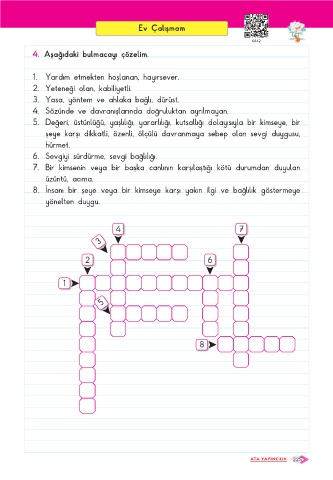 Ev Çalışmam
4. Aşağıdaki bulmacayı çözelim.
1. Yardım etmekten hoşlanan, hayırsever.
2. Yeteneği olan, kabiliyetli.
3. Yasa, yöntem ve ahlaka bağlı, dürüst.
4. Sözünde ve davranışlarında doğruluktan ayrılmayan.
5. Değeri, üstünlüğü, yaşlılığı, yararlılığı, kutsallığı dolayısıyla bir kimseye, bir
şeye karşı dikkatli, özenli, ölçülü davranmaya sebep olan sevgi duygusu,
hürmet.
6. Sevgiyi sürdürme, sevgi bağlılığı.
7. Bir kimsenin veya bir başka canlının karşılaştığı kötü durumdan duyulan
üzüntü, acıma.
8. İnsanı bir şeye veya bir kimseye karşı yakın ilgi ve bağlılık göstermeye
yönelten duygu.
4 7
3
2 6
1
5
8
ATA YAYINCILIK